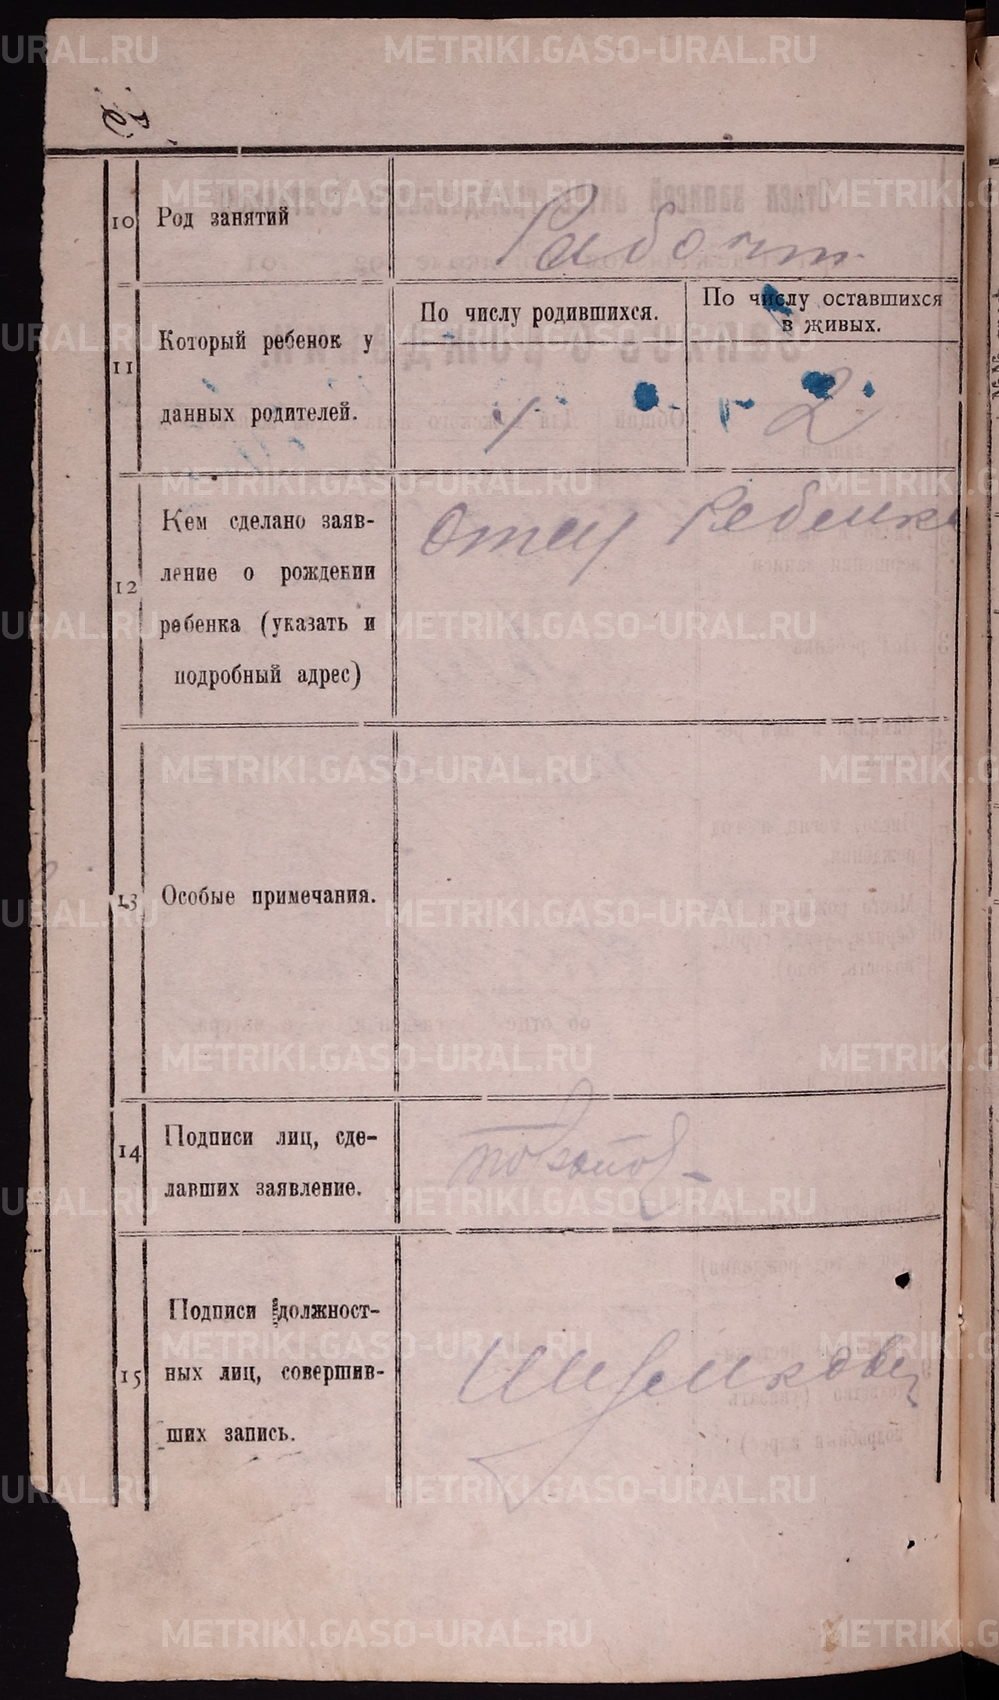 10 Род занятий
11 Который ребенок у
данных родителей.
По числу родившихся.
По числу оставшихся
в живых.
2
12 Кем сделано заяв-
ление о рождении
ребенка (указать и
подробный адрес)
Отец Ребенка
13 Особые примечания.
14 Подписи лиц, сде-
лавших заявление.
15 Подписи должност-
ных лиц, совершив-
ших запись.
METRIKI.GASO-URAL.RU